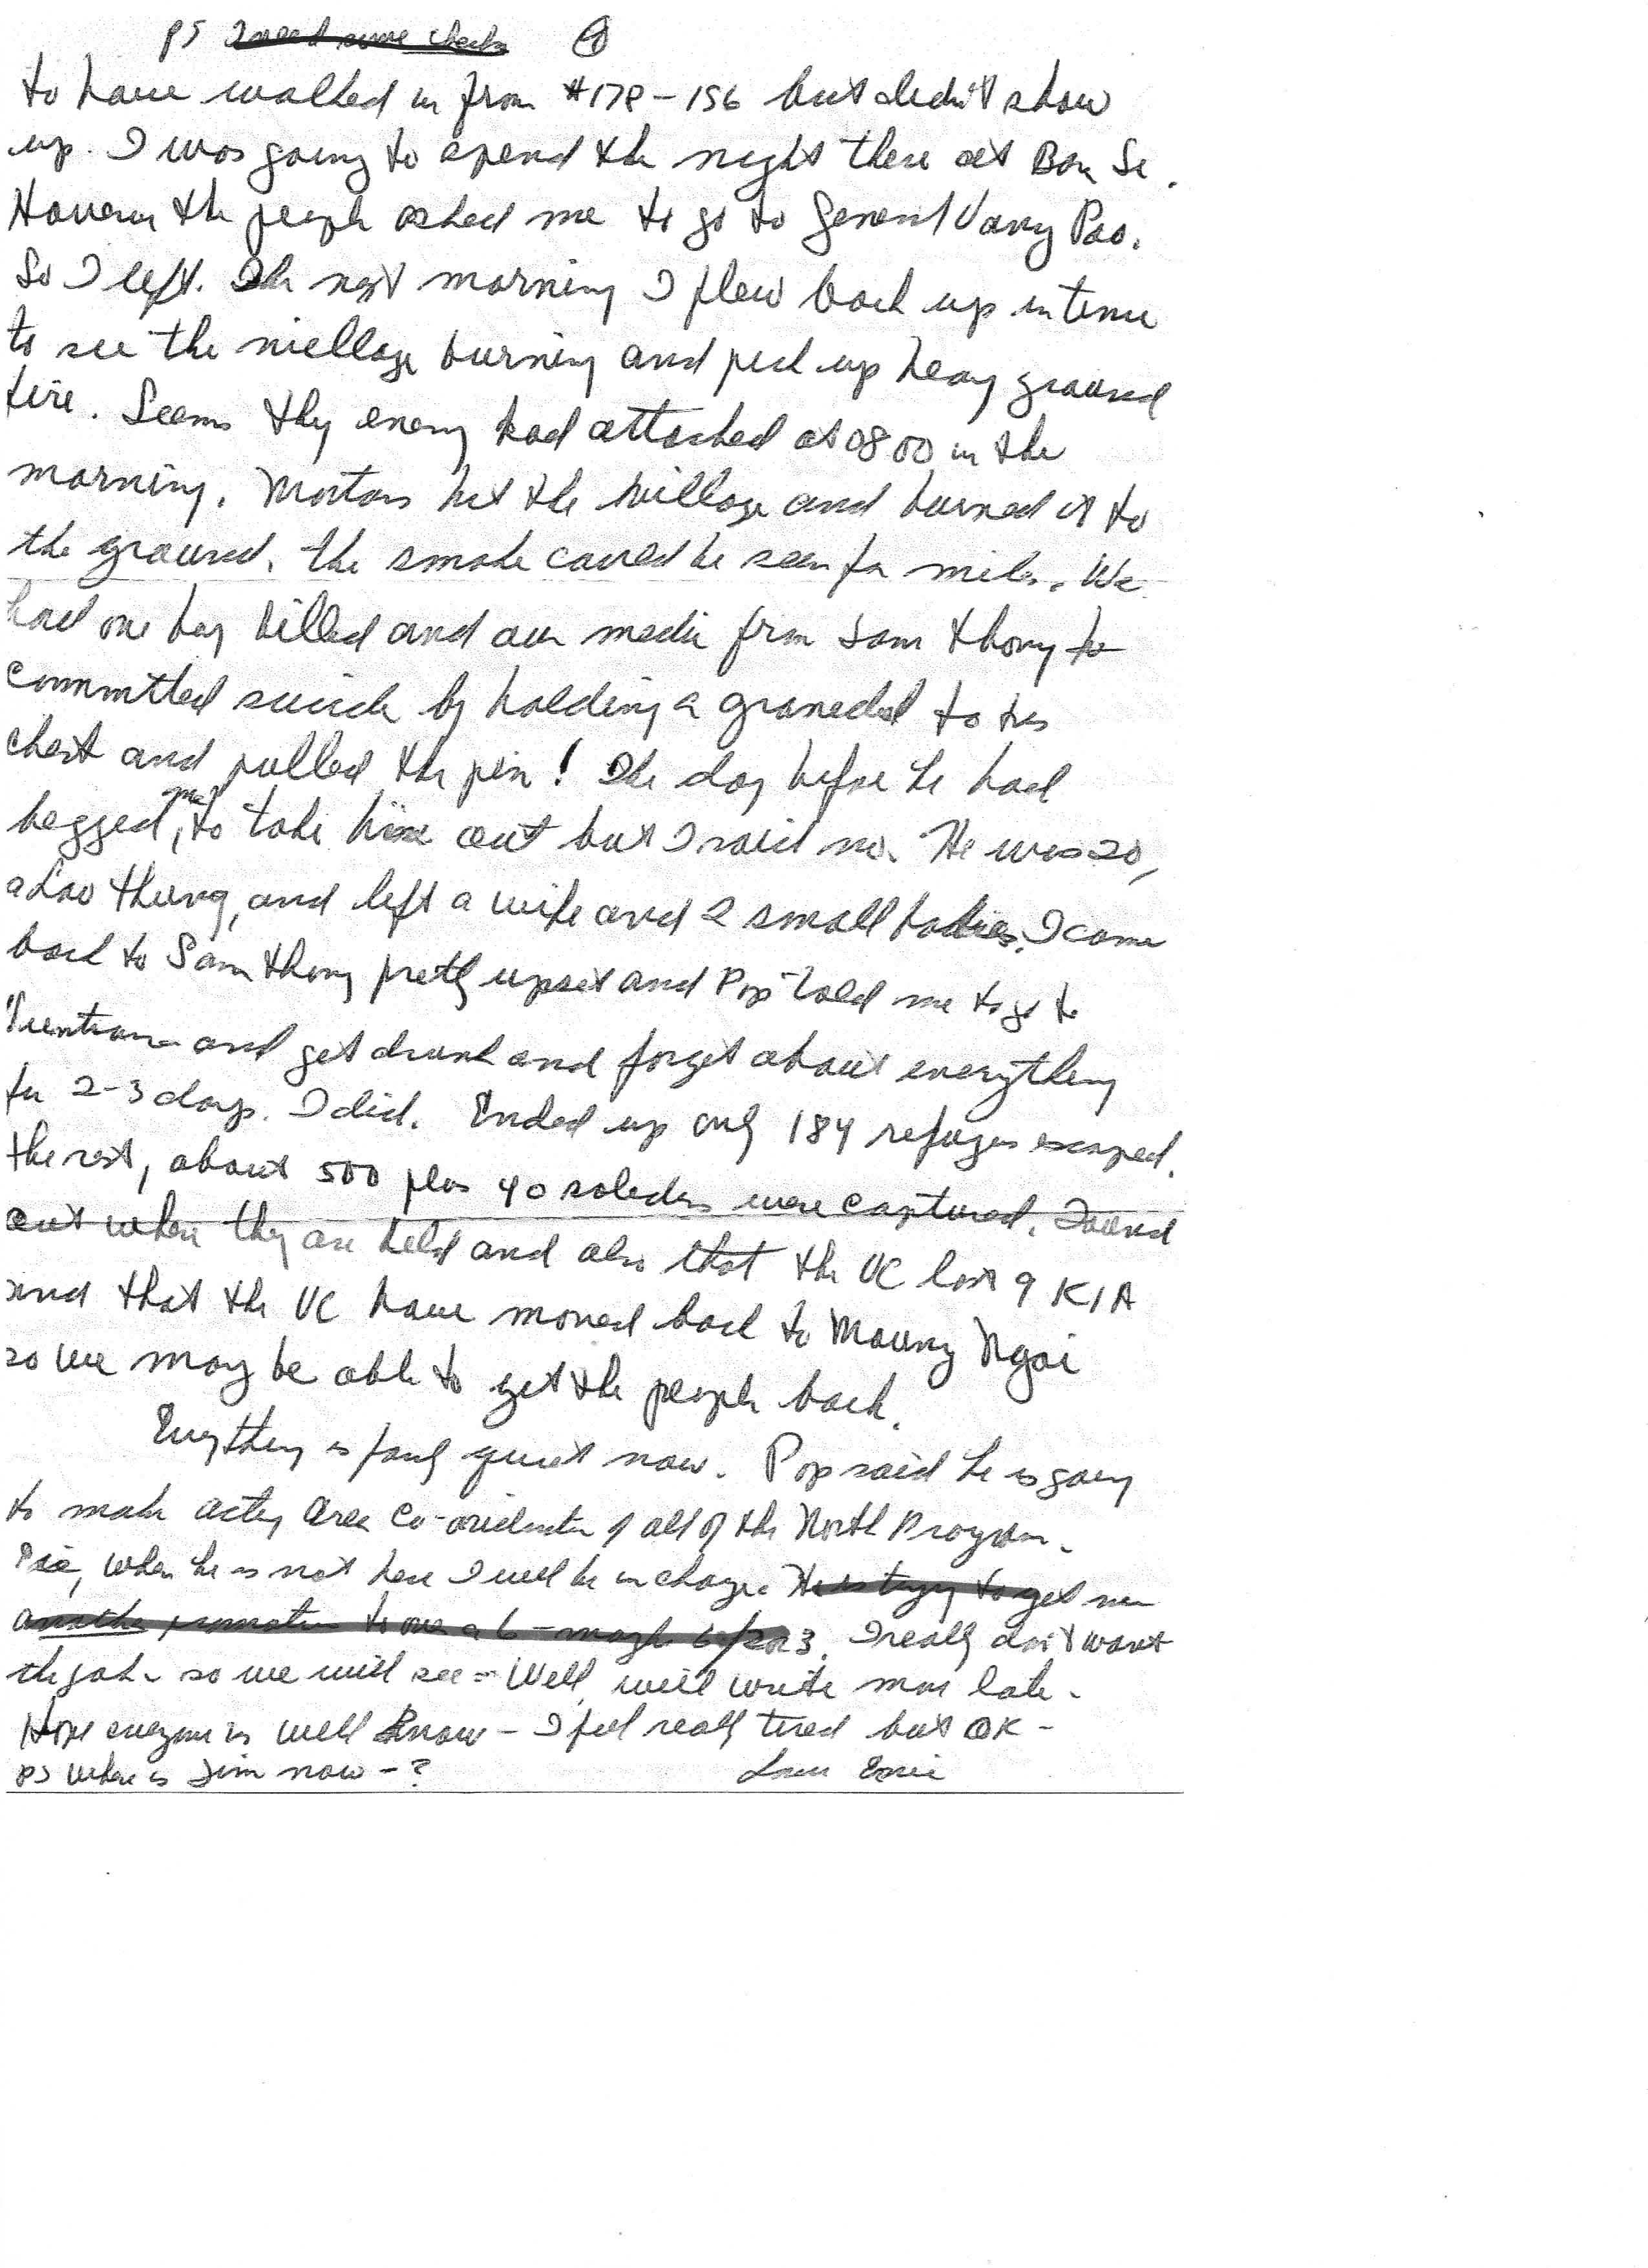 PS I need some checks ④
to have walked in from #178-156 but didn't show
up. I was going to spend the night there at Ban Se.
However the people asked me to go to General Vang Pao.
So I left. The next morning I flew back up in time
to see the village burning and pick up heavy ground
fire. Seems they enemy had attacked at 0800 in the
morning. Mortars hit the village and burned it to
the ground. the smoke could be seen for miles. We
had one boy killed and our medic from Sam Thong
committed suicide by holding a graneded to his
chest and pulled the pin! The day before he had
begged me to take him out but I said no. He was 20,
a Lao Thung, and left a wife and 2 small babies. I came
back to Sam Thong pretty upset and Pop told me to go to
Vientiane and get drunk and forget about everything
for 2-3 days. I did. Ended up only 184 refugees escaped.
the rest, about 500 plus 40 soldiers were captured. Found
out where they are held and also that the VC lost 9 KIA
and that the VC have moved back to Moung Ngai
so we may be able to get the people back.
Everything is fairly quiet now. Pop said he is going
to make acting Area Co-ordinator of all of the North Program.
when he is not here I will be in charge. He is trying to get me
another promotion to a 6 - maybe 3. I really don't want
the job - so we will see - Well, will write more later.
Hope everyone is well know - I feel really tired but OK -
PS Where is Jim now - ? Love Ernie